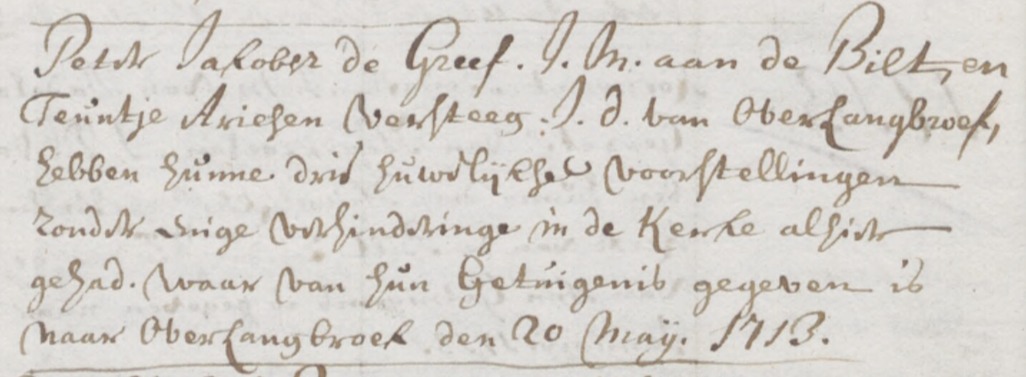 Peter Jakobsz de Greef. J. M. aan de Bilt, en
Teuntje Ariesen Versteeg. J. d. van Overlangbroek,
hebben hunne drie huwelijkse voorstellingen
zonder enige verhinderinge in de Kerke alhier
gehad. waar van hun Getuigenis gegeven is
naar Overlangbroek den 20 Maÿ. 1713.